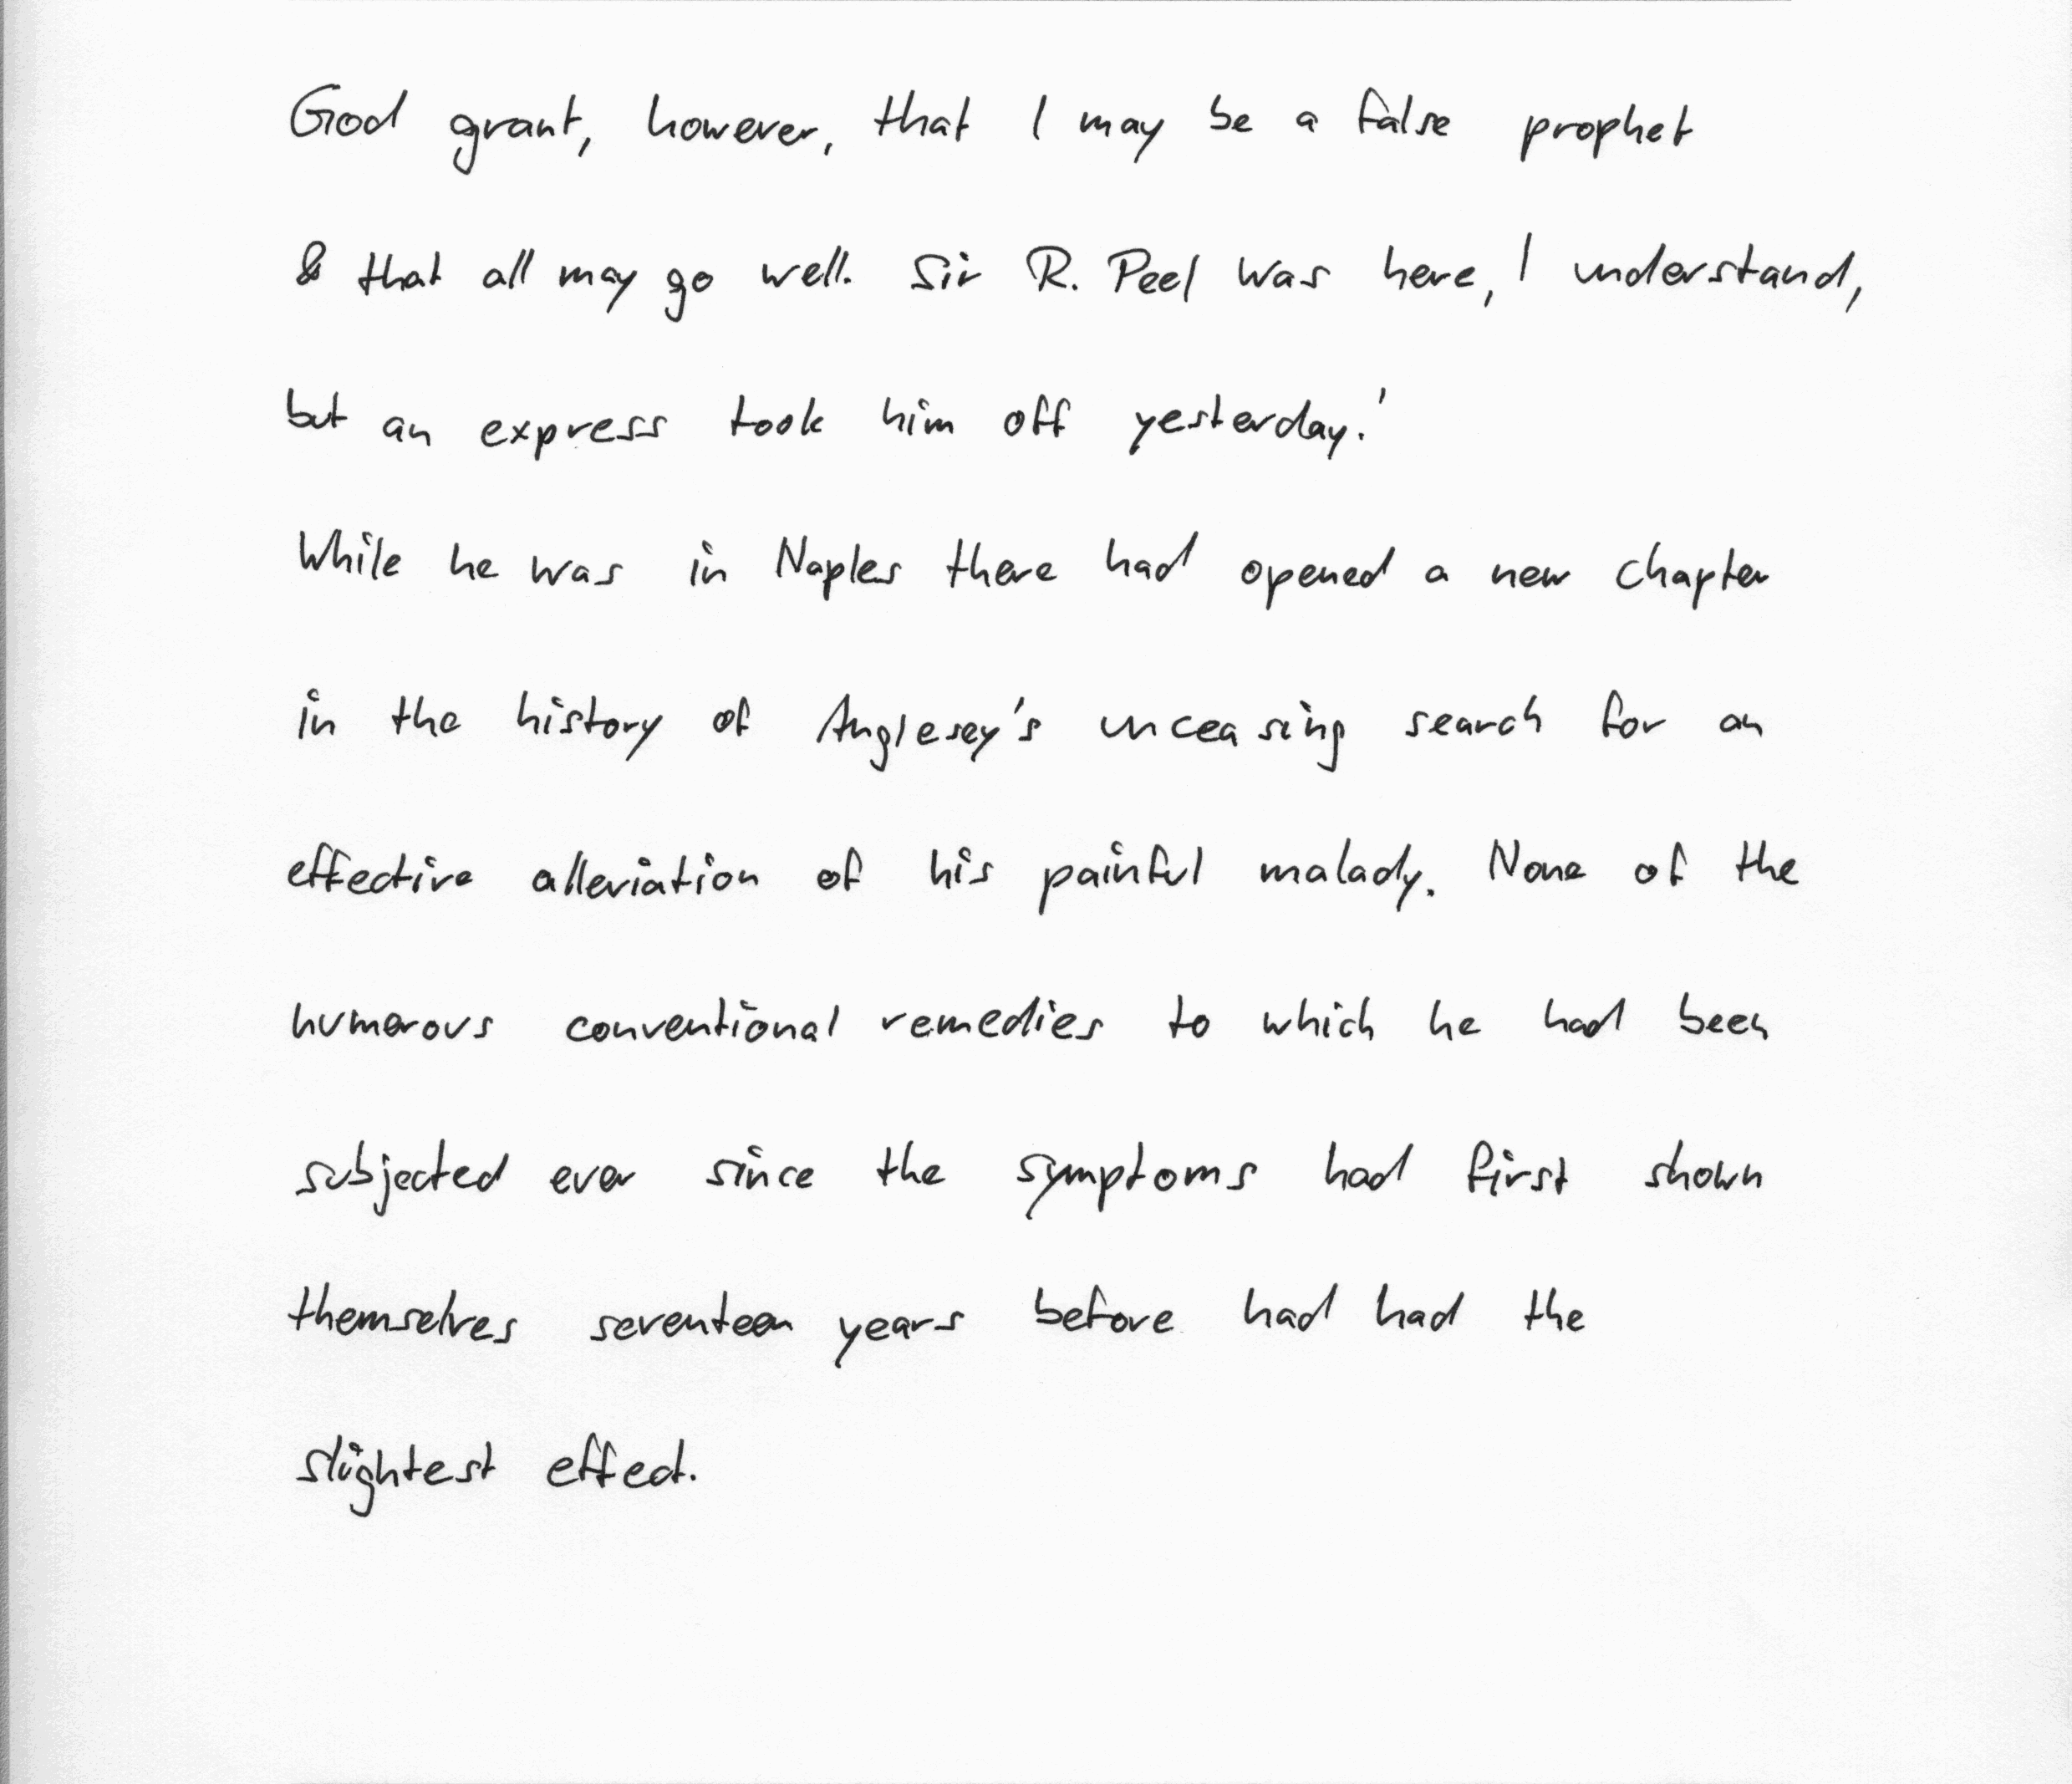 God grant, however, that I may be a false prophet
& that all may go well. Sir R. Peel was here, I understand,
but an express took him off yesterday.'
While he was in Naples there had opened a new chapter
in the history of Anglesey's unceasing search for an
effective alleviation of his painful malady. None of the
numerous conventional remedies to which he had been
subjected ever since the symptoms had first shown
themselves seventeen years before had had the
slightest effect.